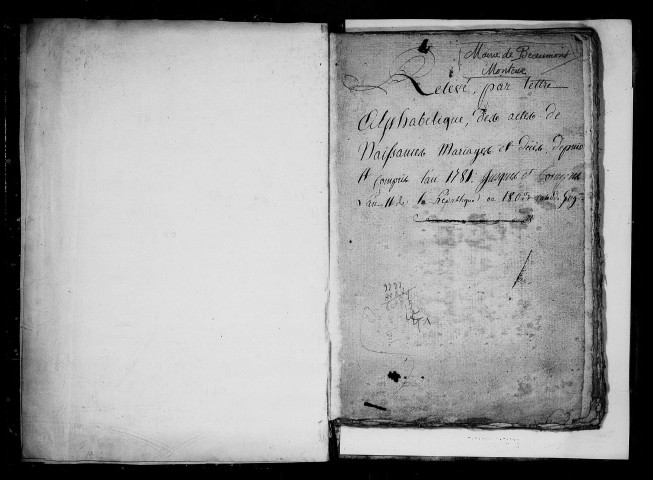 Mairie de Beaumont
Monteux
Relevé, par lettre
Alphabetique, des actes de
Naissances Mariages et décès, depuis
et Compris l'an 1781. Jusques et Compris
L'an 11 de la République ou 1803